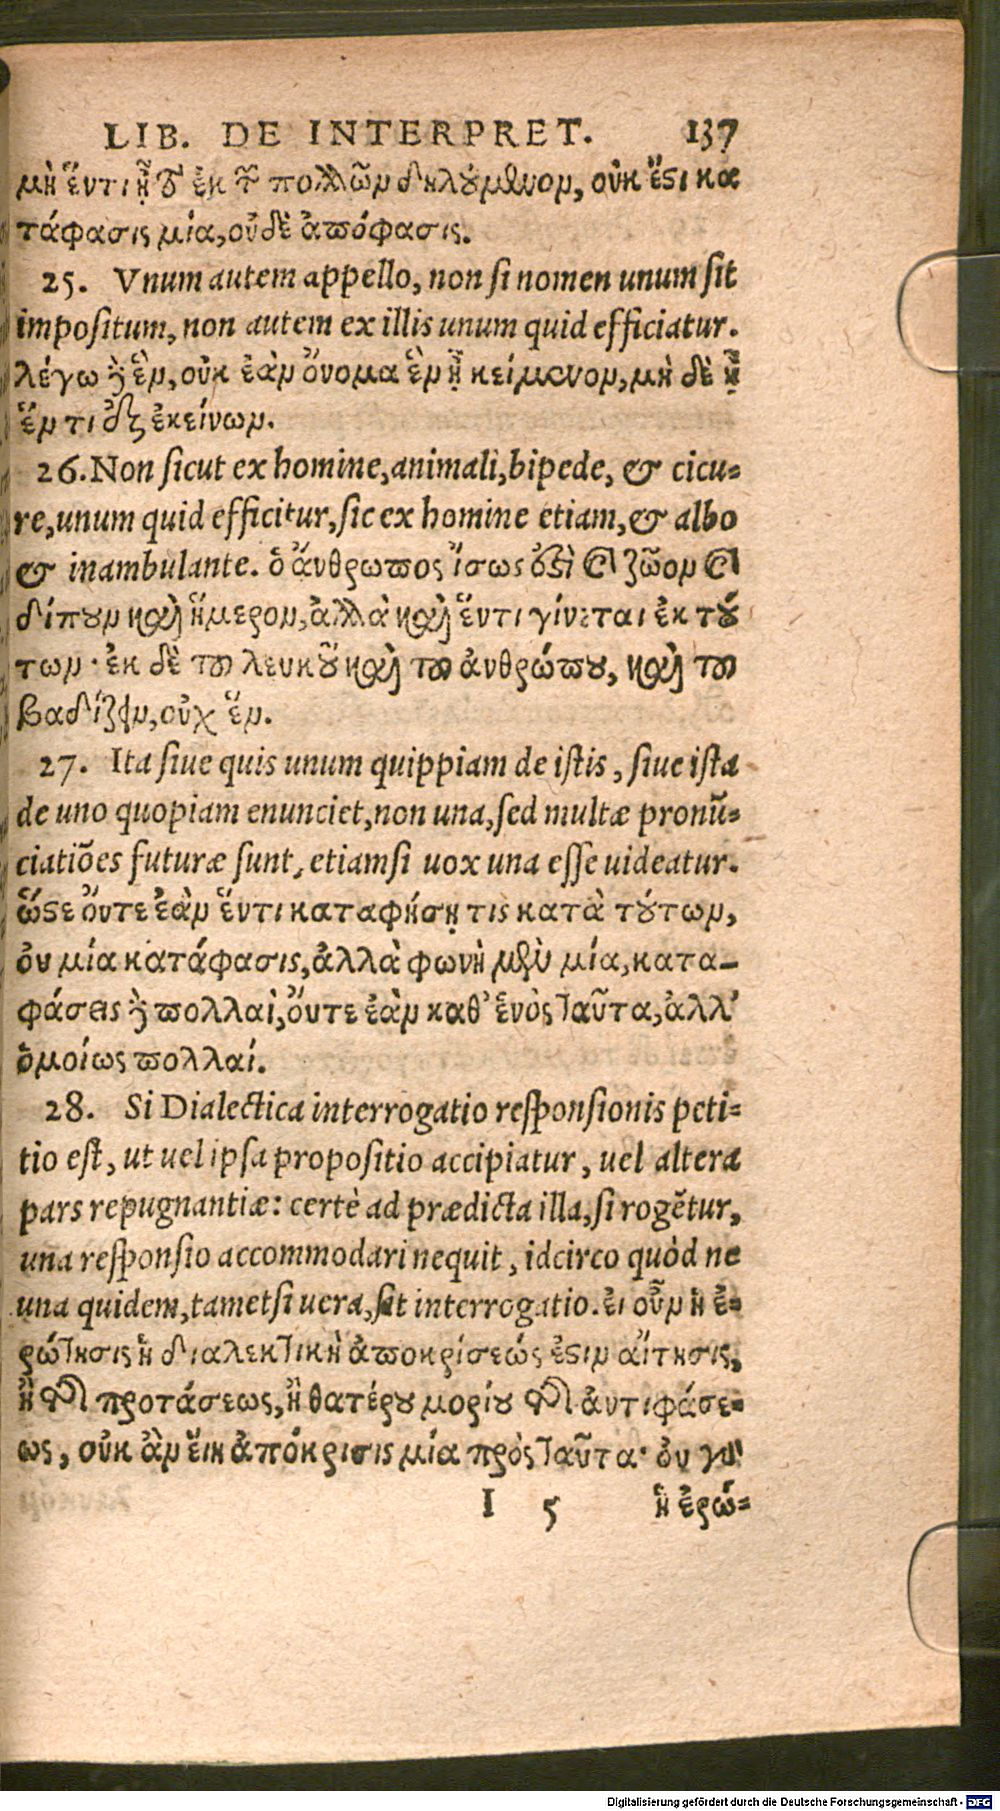 LIB. DE INTERPRET. 137
μὴ ἕν τι ᾖ τὸ ἐκ τῶν πολλῶν δηλούμενον, οὐκ ἔστι κα
τάφασις μία, οὐδὲ ἀπόφασις.
25. Vnum autem appello, non si nomen unum sit
impositum, non autem ex illis unum quid efficiatur.
λέγω δὲ ἓν, οὐκ ἐὰν ὄνομα ἓν ᾖ κείμενον, μὴ δὲ ᾖ
ἕν τι ἐξ ἐκείνων.
26. Non sicut ex homine, animali, bipede, & cicu-
re, unum quid efficitur, sic ex homine etiam, & albo
& inambulante. ὁ ἄνθρωπος ἴσως ἐστὶ καὶ ζῶον καὶ
δίπουν καὶ ἥμερον, ἀλλὰ καὶ ἕν τι γίνεται ἐκ τού
των· ἐκ δὲ τοῦ λευκοῦ καὶ τοῦ ἀνθρώπου, καὶ τοῦ
βαδίζειν, οὐχ ἕν.
27. Ita siue quis unum quippiam de istis, siue ista
de uno quopiam enunciet, non una, sed multæ pronũ-
ciatiões futuræ sunt, etiamsi uox una esse uideatur.
ὥστε οὔτε ἐὰν ἕν τι καταφήσῃ τις κατὰ τούτων,
οὐ μία κατάφασις, ἀλλὰ φωνὴ μὲν μία, κατα-
φάσεις δὲ πολλαὶ, οὔτε ἐὰν καθ' ἑνὸς ταῦτα, ἀλλ'
ὁμοίως πολλαί.
28. Si Dialectica interrogatio responsionis peti-
tio est, ut uel ipsa propositio accipiatur, uel altera
pars repugnantiæ: certè ad prædicta illa, si rogẽtur,
una responsio accommodari nequit, idcirco quòd ne
una quidem, tametsi uera, sit interrogatio. εἰ οὖν ἡ ἐ-
ρώτησις ἡ διαλεκτικὴ ἀποκρίσεώς ἐστιν αἴτησις,
ἢ τῆς προτάσεως, ἢ θατέρου μορίου τῆς ἀντιφάσε-
ως, οὐκ ἂν εἴη ἀπόκρισις μία πρὸς ταῦτα· οὐ γὰρ
I 5 ἡ ἐρώ-
Digitalisierung gefördert durch die Deutsche Forschungsgemeinschaft - DFG